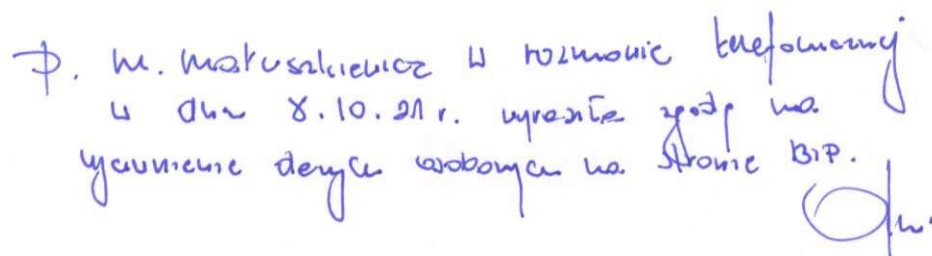 P. M. Matuszkiewicz w rozmowie telefonicznej
w dniu 8.10.21 r. wyraziła zgodę na
ujawnienie danych osobowych na stronie BIP.